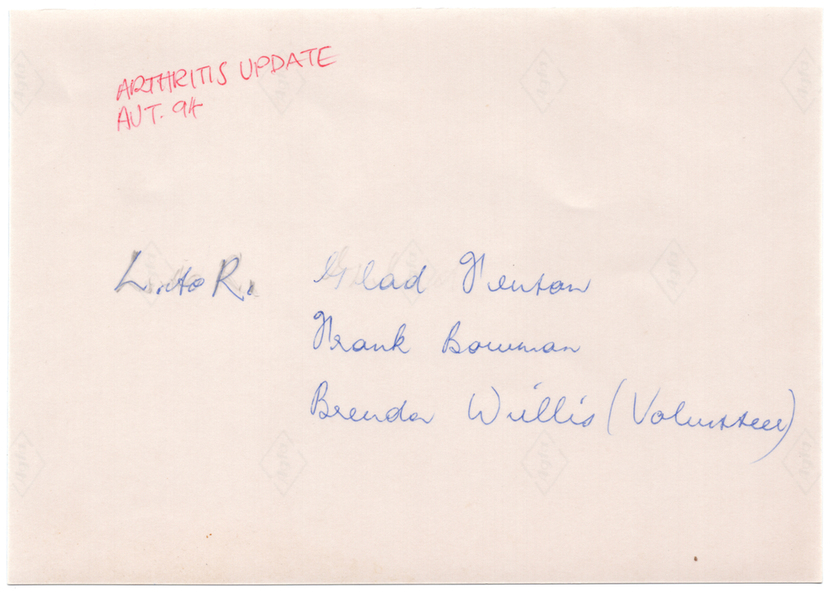 ARTHRITIS UPDATE
AUT. 94
L. to R. Glad Fenton
Frank Bowman
Brenda Willis (Volunteer)